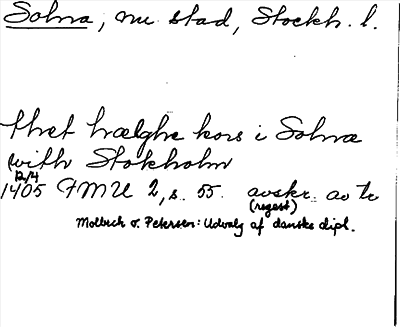 Solna, nu stad, Stockh. l.
thet hælghe kors i Solna
(with Stokholm
12/4
1405 FMU 2, s. 55. avskr. av tr
(regest)
Molbech o. Petersen: Udvalg af danske dipl.